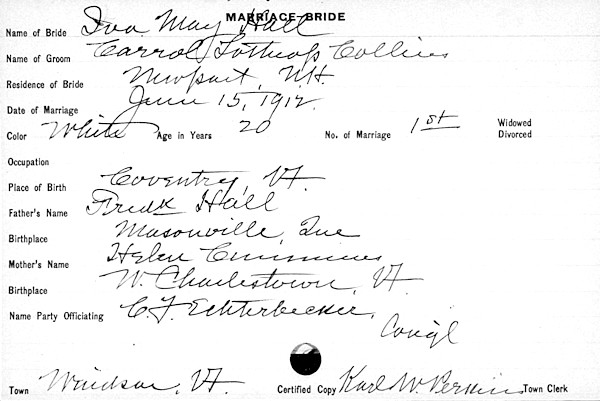 MARRIAGE-BRIDE
Name of Bride Iva May Hall
Name of Groom Carrol Lothrop Collins
Residence of Bride Newport, N.H.
Date of Marriage June 15, 1912.
Color White Age in Years 20 No. of Marriage 1st Widowed
Divorced
Occupation
Place of Birth Coventry, Vt.
Father's Name Fredk Hall
Birthplace Masonville, Que
Mother's Name Helen Cummings
Birthplace W. Charlestown, Vt.
Name Party Officiating C. F. Echterbecker,
Cong'l
Town Windsor, Vt. Certified Copy Karl W. Perkins Town Clerk